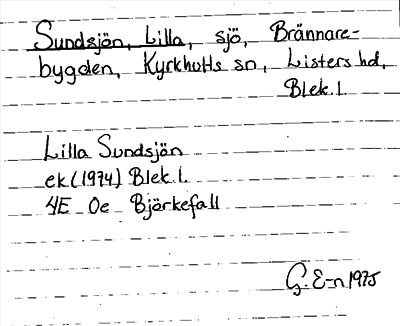 Sundsjön, Lilla, sjö, Brännare-
bygden, Kyrkhults sn, Listers hd,
Blek. l.
Lilla Sundsjön
ek (1974) Blek. l.
4E 0e Björkefall
G. E-n 1975